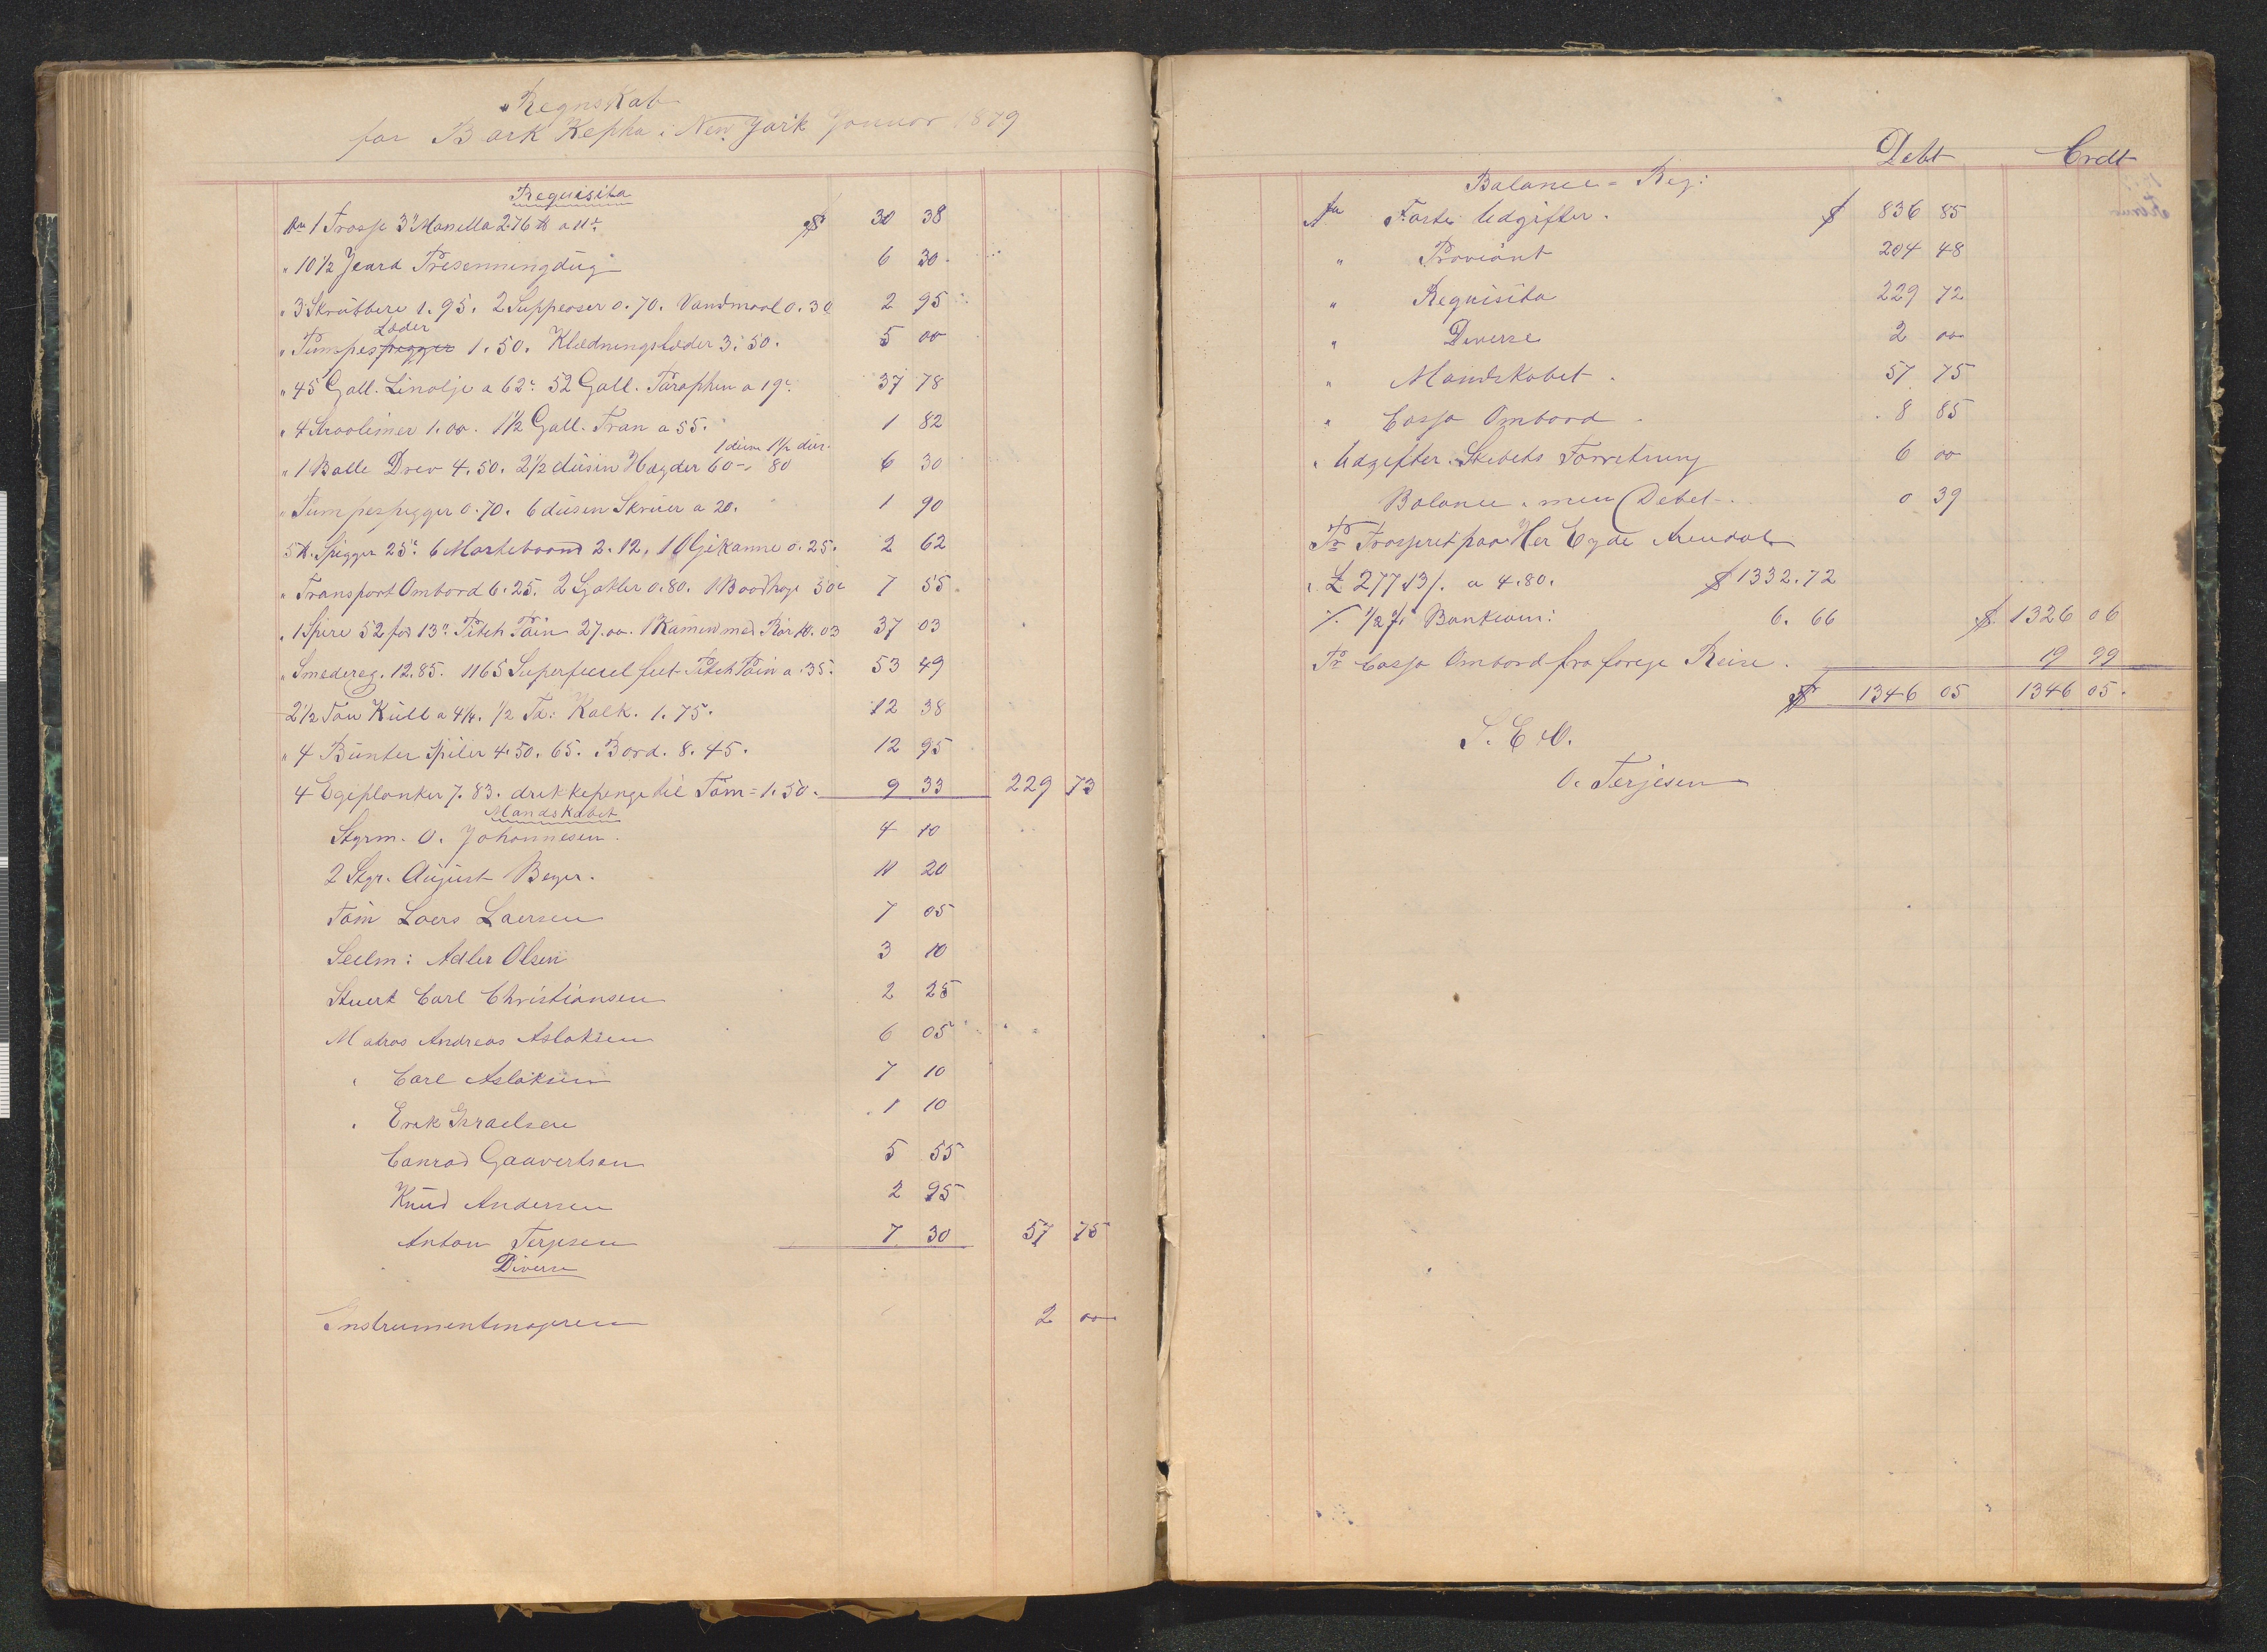 Regnskab
for Bark Kepha i New York Januar 1879
Requisita
An 1 Trosse 3" Manella 276 ℔ a 11 c $ 30 38
" 10½ Jeard Presenningdug 6 30
" 3 Skrubbere 1.95. 2 Suppeoser 0.70. Vandmaal 0.30 2 95
Læder
" Pumpespigger 1.50. Klædningslæder 3.50. 5 00
" 45 Gall. Linolje a 62 c 52 Gall. Paraphin a 19 c 37 78
" 4 1.00. 1½ Gall. Tran a 55. 1 82
1 dusin 1½ dus.
" 1 Balle Drev 4.50. 2½ dusin Høgder 60 - 80 6 30
" Pumpespigger 0.70. 6 dusin Skruer a 20. 1 90
5 ℔. Spigger 25 c 6 Marlebaand 2.12, 1 Oljekanne 0.25. 2 62
" Transport Ombord 6.25. 2 Gafler 0.80. 1 Baadhage 50 c 7 55
" 1 Spire 52 fod 13" Pitch Pain 27.00. 1 Kamin med Rør 10.03 37 03
" Smedereg. 12.85. 1165 Superfeciel feet Pitch Pain a 35. 53 49
2½ Ton Kull a 4¼. ½ Td: Kalk. 1.75. 12 38
" 4 Bunter Spiler 4.50. 65. Bord. 8.45. 12 95
4 Egeplanker 7.83. drikkepenge til Tøm = 1.50. 9 33 229 73
Mandskabet
Stgrm. O. Johannesen. 4 10
2 Stgr. August Beyer. 11 20
Tøm Loers Laersen 7 05
Seelm: Adler Olsen 3 10
Stuert Carl Christiansen 2 25
Matros Andreas Aslaksen 6 05
" Carl Aslaksen 7 10
" Erik Israelsen 1 10
Conrad Gaavertsen 5 55
Knud Andersen 2 95
Anton Terjesen 7 30 57 75
Diverse
Instrumentmageren 2 00
Debt Credt
Balance = Reg:
An Faste Udgifter. $ 836 85
" Proviant 204 48
" Requisita 229 72
" Diverse 2 00
" Mandskabet. 57 75
" Cassa Ombord. 8 85
" Udgifter Skibets Forretning 6 00
Balance. men Debet. 0 39
Pr Trasseret paa Her Eyde Arendal
" £ 277.13/. a 4.80. $ 1332.72
./. 1/2 % Bankcom: 6.66 $ 1326 06
Pr Cassa Ombord fra forege Reise. 19 99
$ 1346 05 1346 05.
S. E & O.
O. Terjesen